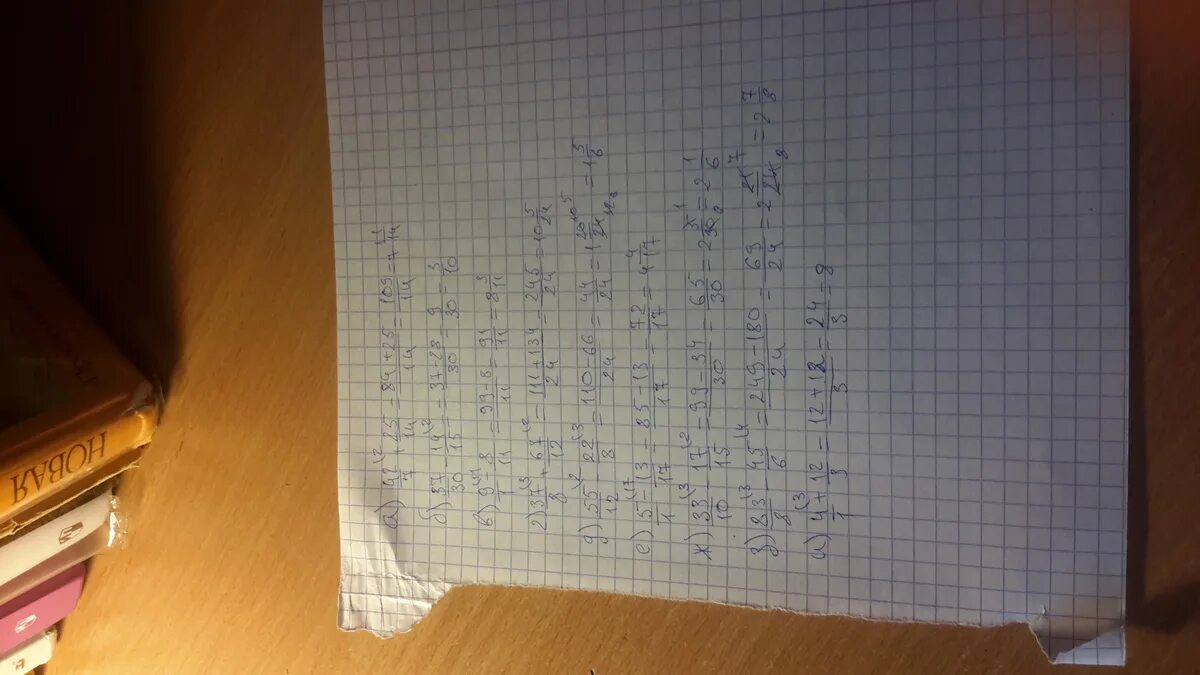 а) 42/7 \2 + 25/14 = 84+25/14 = 109/14 = 7 11/14
б) 37/30 - 14/15 \2 = 37-28/30 = 9/30 = 3/10
в) 9/1 \11 - 8/11 = 99-8/11 = 91/11 = 8 3/11
г) 37/8 \3 + 67/12 \2 = 111+134/24 = 245/24 = 10 5/24
д) 55/12 \2 - 22/8 \3 = 110-66/24 = 44/24 = 1 20/24 = 1 5/6
е) 5/1 \17 - 13/17 = 85-13/17 = 72/17 = 4 4/17
ж) 33/10 \3 - 17/15 \2 = 99-34/30 = 65/30 = 2 5/30 = 2 1/6
з) 83/8 \3 - 45/6 \4 = 249-180/24 = 69/24 = 2 21/24 = 2 7/8
и) 4/1 \3 + 12/3 = 12+12/3 = 24/3 = 8
НОВАЯ